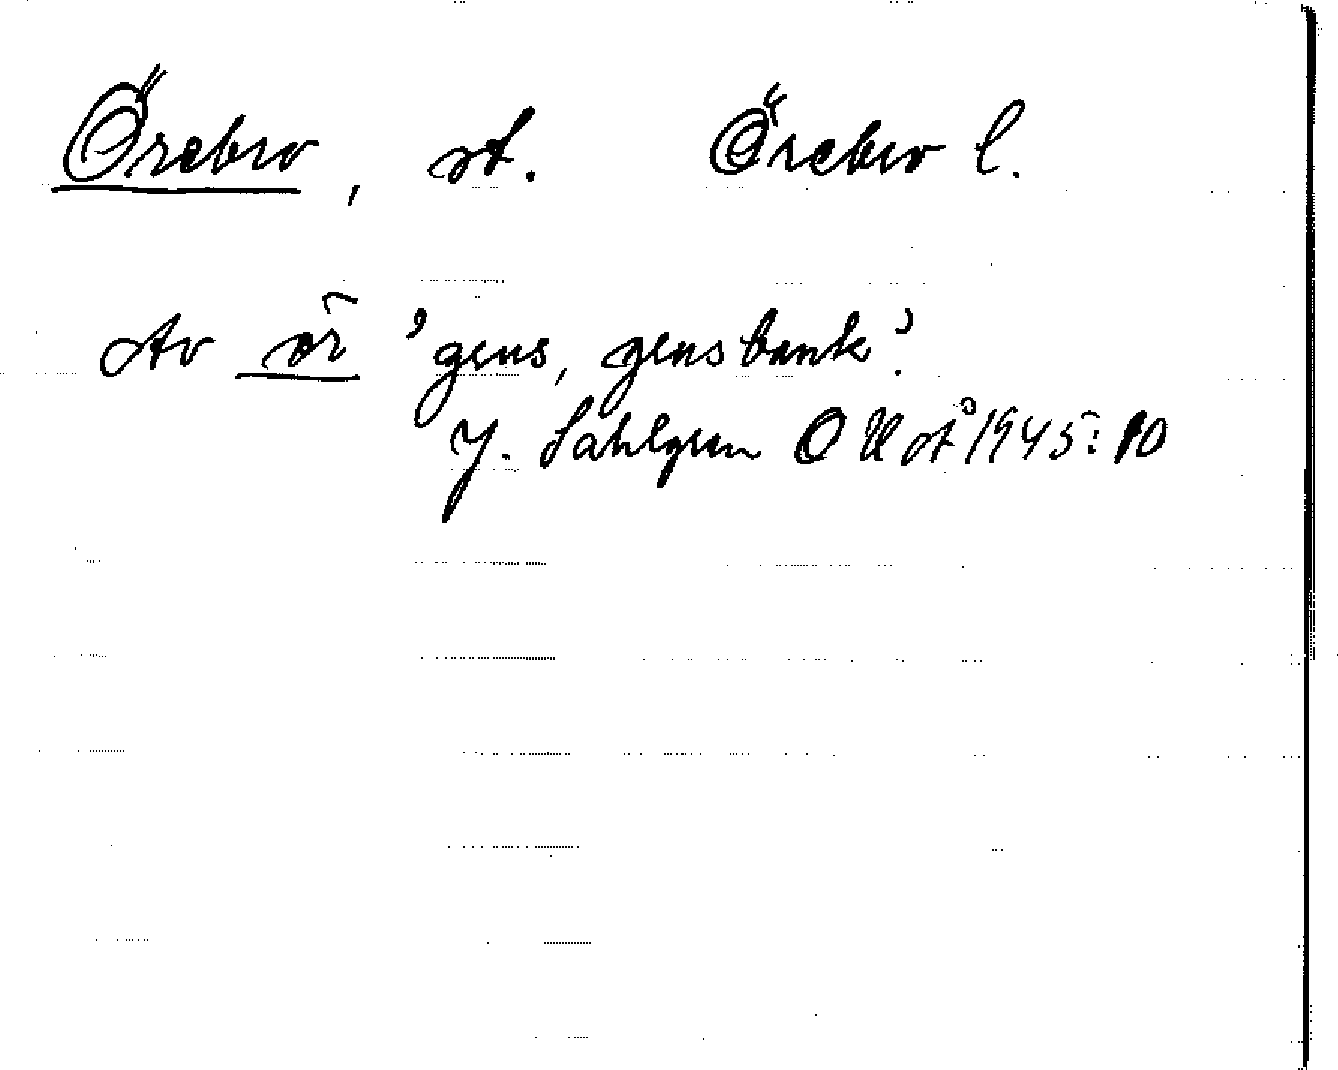 Örebro, st. Örebro l.
Av ör 'grus, grusbank'.
J. Sahlgren OUSÅ 1945: 10